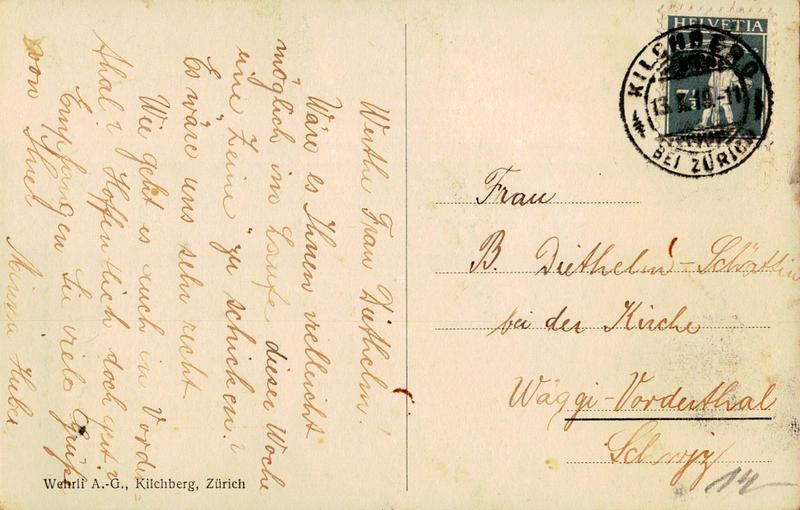 Werthe Frau Diethelm!
Wäre es Ihnen vielleicht
möglich im Laufe dieser Woche
eine "Zeine" zu schicken?
Es wäre uns sehr recht
Wie geht es auch in Vorder=
thal? Hoffentlich doch gut?
Empfangen Sie viele Grüße
von
Minna Huber
Wehrli A.-G., Kilchberg, Zürich
HELVETIA
7½
KILCHBERG
BEI ZÜRICH
Frau
B. Diethelm-Schättin
bei der Kirche
Wäggi-Vorderthal
Schwyz
14